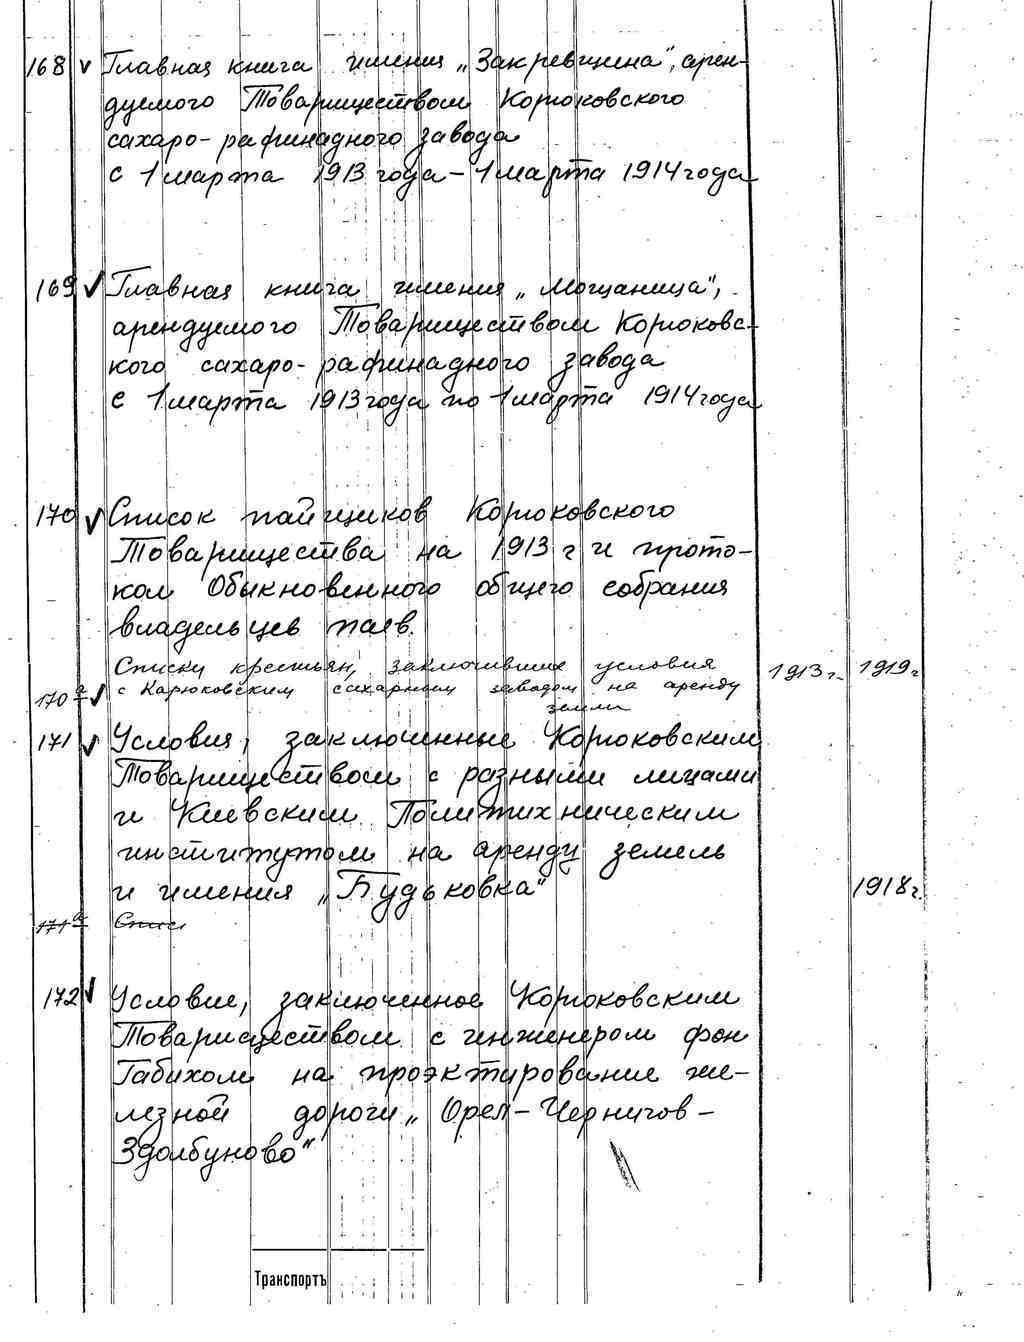 168 v Главная книга имения „Закревщина", арен-
дуемого Товариществом Корюковского
сахаро-рафинадного завода
с 1 марта 1913 года - 1 марта 1914 года
169 v Главная книга имения „Мощаница",
арендуемого Товариществом Корюковс-
кого сахаро-рафинадного завода
с 1 марта 1913 года по 1 марта 1914 года
170 v Список пайщиков Корюковского
Товарищества на 1913 г и прото-
кол Обыкновенного общего собрания
владельцев паев.
Списки крестьян, заключивших условия 1913 г. 1919 г
170 а v с Карюковским сахарным заводом на аренду
земли
171 v Условия, заключенные Корюковским
Товариществом с разными лицами
и Киевским Политихническим
институтом на аренду земель
и имения „Будьковка" 1918 г.
171 а Спис
172 v Условие, заключенное Корюковским
Товариществом с инженером фон
Габихом на проэктирование же-
лезной дороги „Орел-Черничов-
Здолбуново"
Транспортъ